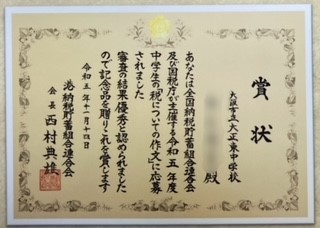 賞状
大阪市立大正東中学校
殿
あなたは全国納税貯蓄組合連合会
及び国税庁が主催する令和五年度
中学生の「税についての作文」に応募
されました
審査の結果優秀と認められました
ので記念品を贈りこれを賞します
令和五年十一月十四日
港納税貯蓄組合連合会
会長 西村典